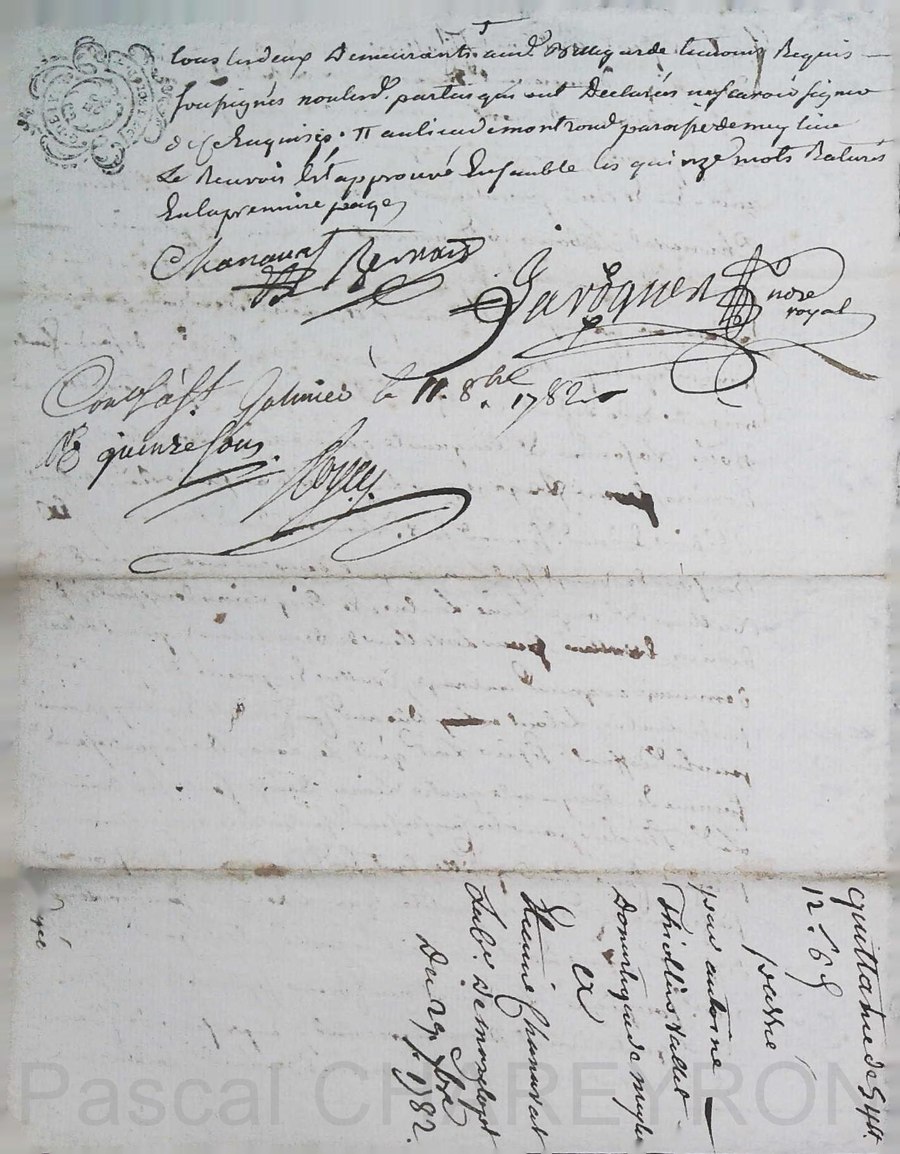 tous les deux Demeurants aud. Bellegarde temoins Requis
soussignés non lesd. parties qui ont Déclarés ne scavoir signer
de ce Requises. au lieu de montrond paroisse de meylieu
Le Renvois Est approuvé Ensemble les quinze mots Raturés
En la premiere page
Chanavat Bernard
notre
royal
Conlé à St. Galmier le 11. 8bre 1782
R quinze sous
quittance de
12.
passée
par antoine
Thiollier Valet
Domestique de
a
Chanavat
Lab. De
Du 29. 7bre 1782.
Pascal CHAREYRON